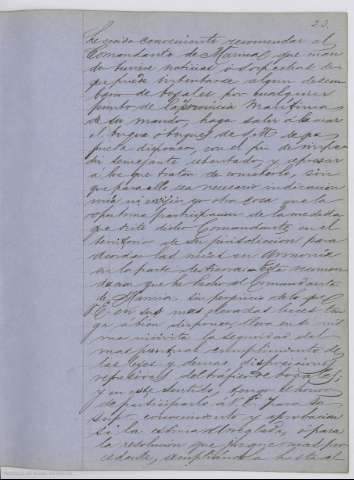 23
He creido conveniente recomendar al
Comandante de Marina, que cuan
do tuviere noticias ó sospechas de
que pueda intentarse algun desem
barco de bozales por cualquier
punto de la provincia Maritima
de su mando, haga salir á la mar
el buque ó buques de S.M. de que
pueda disponer, con el fin de impe
dir semejante atentado, y apresar
á los que traten de cometerlo, sin
que para ello sea necesario indicacion
mia ni otra cosa que la
oportuna participacion de la medida
que dicte dicho Comandante en el
territorio de su jurisdiccion para
acordar las mias en armonia
en la parte de tierra. Esta recomen
dacion que he hecho al Comandante
de Marina sin perjuicio de lo que
V.E. en sus mas elevadas luces ten
ga á bien disponer, lleva en si mis
ma la seguridad del
mas puntual cumplimiento de
las leyes y demas disposiciones
represivas del trafico
y en este sentido, tengo el honor
de participarlo á V.E. para su
superior conocimiento y aprobacion
si la estima arreglada, ó para
la resolucion que juzgue mas pro
cedente, cumpliendo